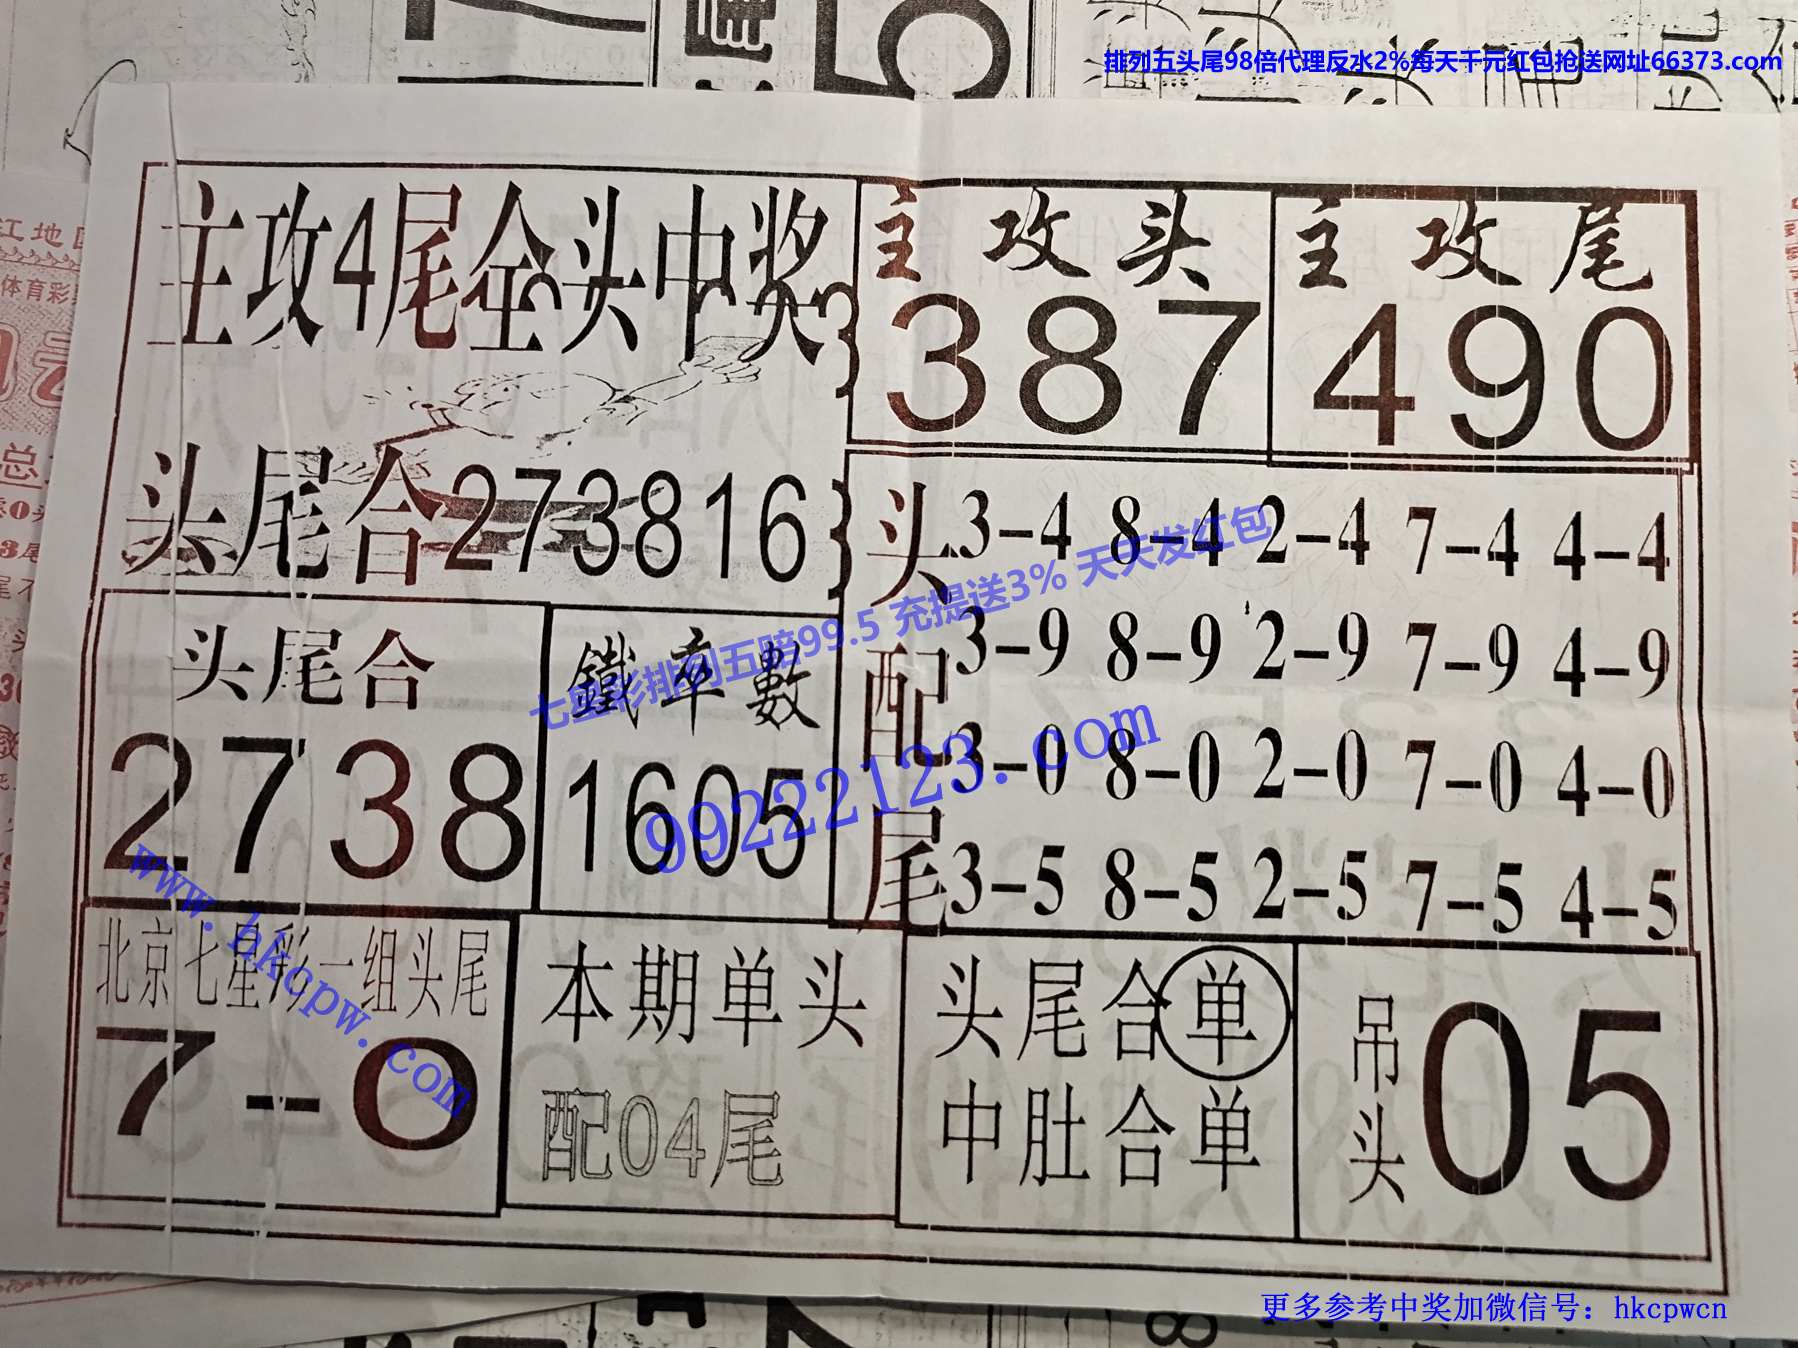 排列五头尾98倍代理反水2%每天千元红包抢送网址66373.com
主攻4尾全头中奖
主攻头
387
主攻尾
490
头尾合273816
头配尾
3-4 8-4 2-4 7-4 4-4
3-9 8-9 2-9 7-9 4-9
3-0 8-0 2-0 7-0 4-0
3-5 8-5 2-5 7-5 4-5
七星彩排列五赔99.5 充提送3% 天天发红包
99222123.com
头尾合
2738
鐵率數
1605
北京七星彩一组头尾
7-0
www.hkcpw.com
本期单头
配04尾
头尾合单
中肚合单
吊头
05
江地
体育彩
总
更多参考中奖加微信号：hkcpwcn